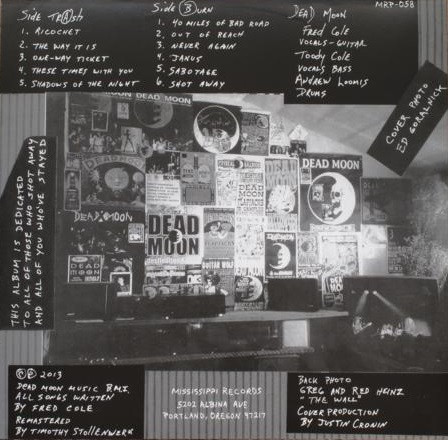 Side TRⒶSH
1. RICOCHET
2. THE WAY IT IS
3. ONE-WAY TICKET
4. THESE TIMES WITH YOU
5. SHADOWS OF THE NIGHT
Side ⒷURN
1. 40 MILES OF BAD ROAD
2. OUT OF REACH
3. NEVER AGAIN
4. JANUS
5. SABOTAGE
6. SHOT AWAY
DEAD MOON
FRED COLE
VOCALS-GUITAR
TOODY COLE
VOCALS BASS
ANDREW LOOMIS
DRUMS
MRP-058
COVER PHOTO
ED GORALNICK
THIS ALBUM IS DEDICATED
TO ALL OF THOSE WHO SHOT AWAY
AND ALL OF YOU WHO'VE STAYED
DEAD MOON
DEAD MOON
DEAD MOON
DEAD
MOON
DEAD
MOON
© ℗ 2013
DEAD MOON MUSIC B.M.I.
ALL SONGS WRITTEN
BY FRED COLE
REMASTERED
BY TIMOTHY STOLLENWERK
MISSISSIPPI RECORDS
5202 ALBINA AVE
PORTLAND, OREGON 97217
BACK PHOTO
GREG AND RED HEINZ
"THE WALL"
COVER PRODUCTION
BY JUSTIN CRONIN